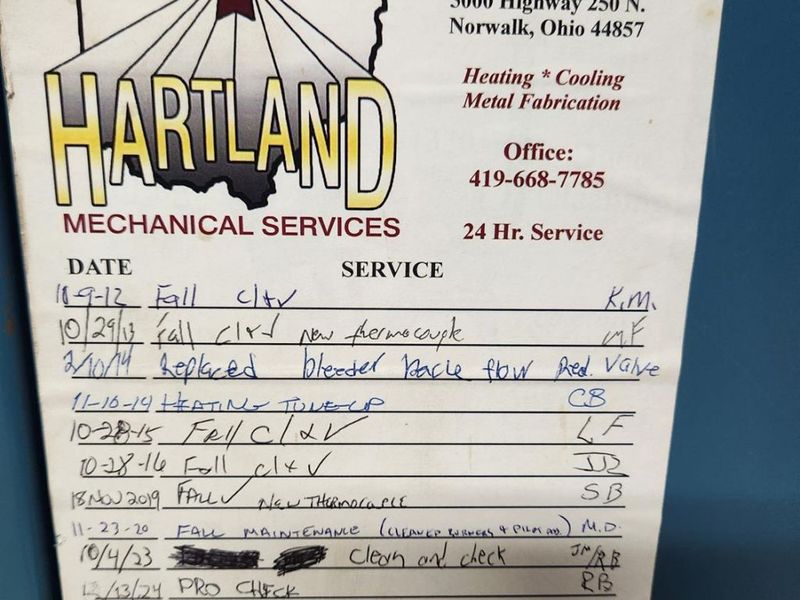 5000 Highway 250 N.
Norwalk, Ohio 44857
Heating * Cooling
Metal Fabrication
HARTLAND
Office:
419-668-7785
MECHANICAL SERVICES
24 Hr. Service
DATE SERVICE
10-9-12 Fall cl+✓ K.M.
10/29/13 Fall cl+✓ New thermocouple MF
2/10/14 Replaced bleeder back flow Red. Valve
11-10-14 HEATING TUNE-UP CB
10-28-15 Fall Cl+✓ LF
10-28-16 Fall cl+✓
18 NOV 2019 FALL ✓ NEW THERMOCOUPLE SB
11-23-20 FALL MAINTENANCE (CLEANED BURNERS + PILOT) M.D.
10/4/23 Clean and check JM/RB
12/13/24 PRO CHECK RB